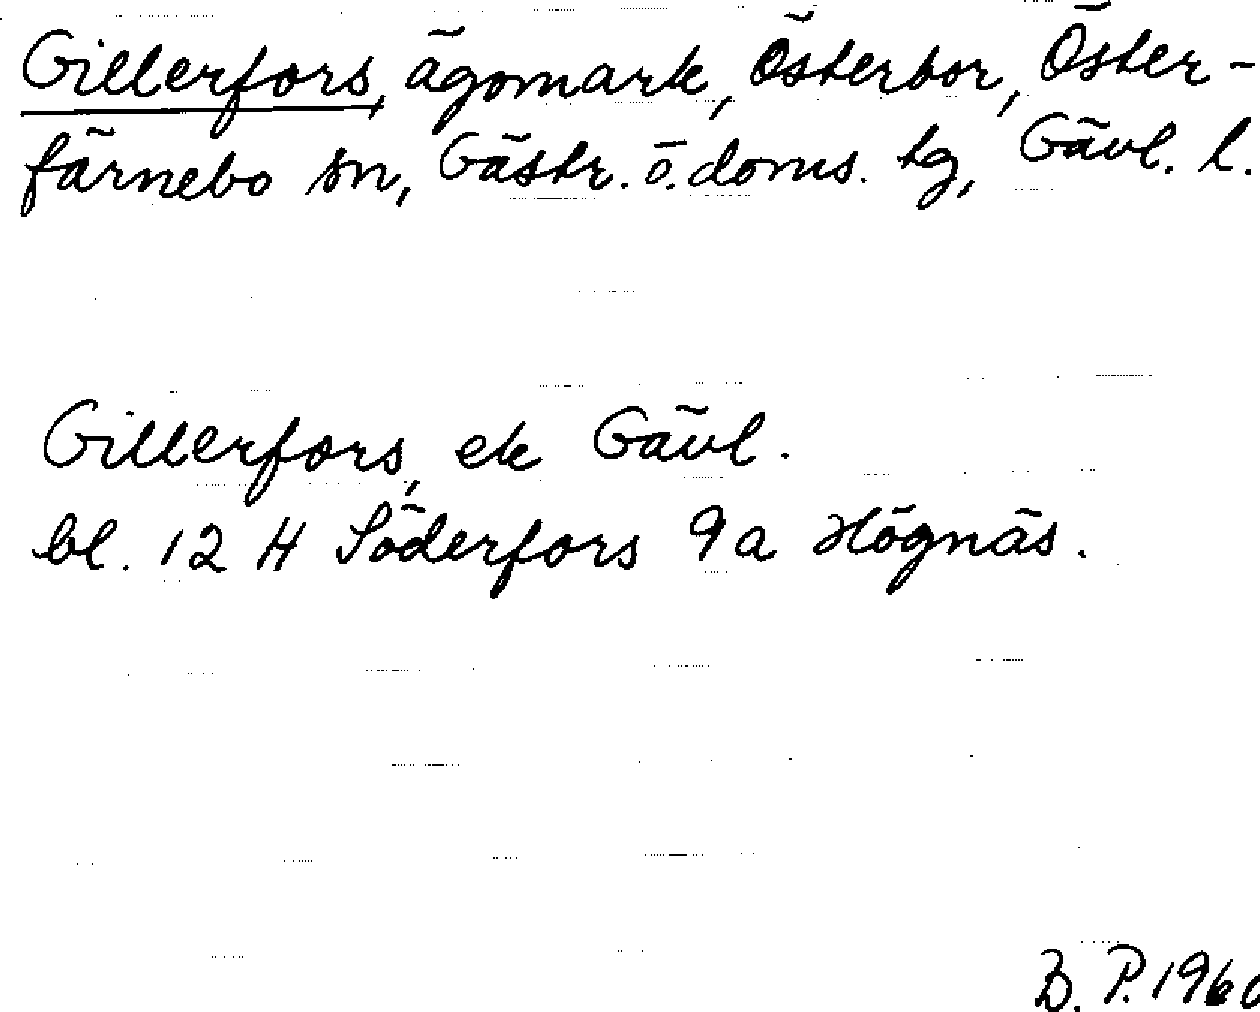 Gillerfors, ägomark, Österbor, Öster-
färnebo sn, Gästr. ö. doms. tg, Gävl. l.
Gillerfors, ek Gävl.
bl. 12 H Söderfors 9 a Högnäs.
B. P. 1960